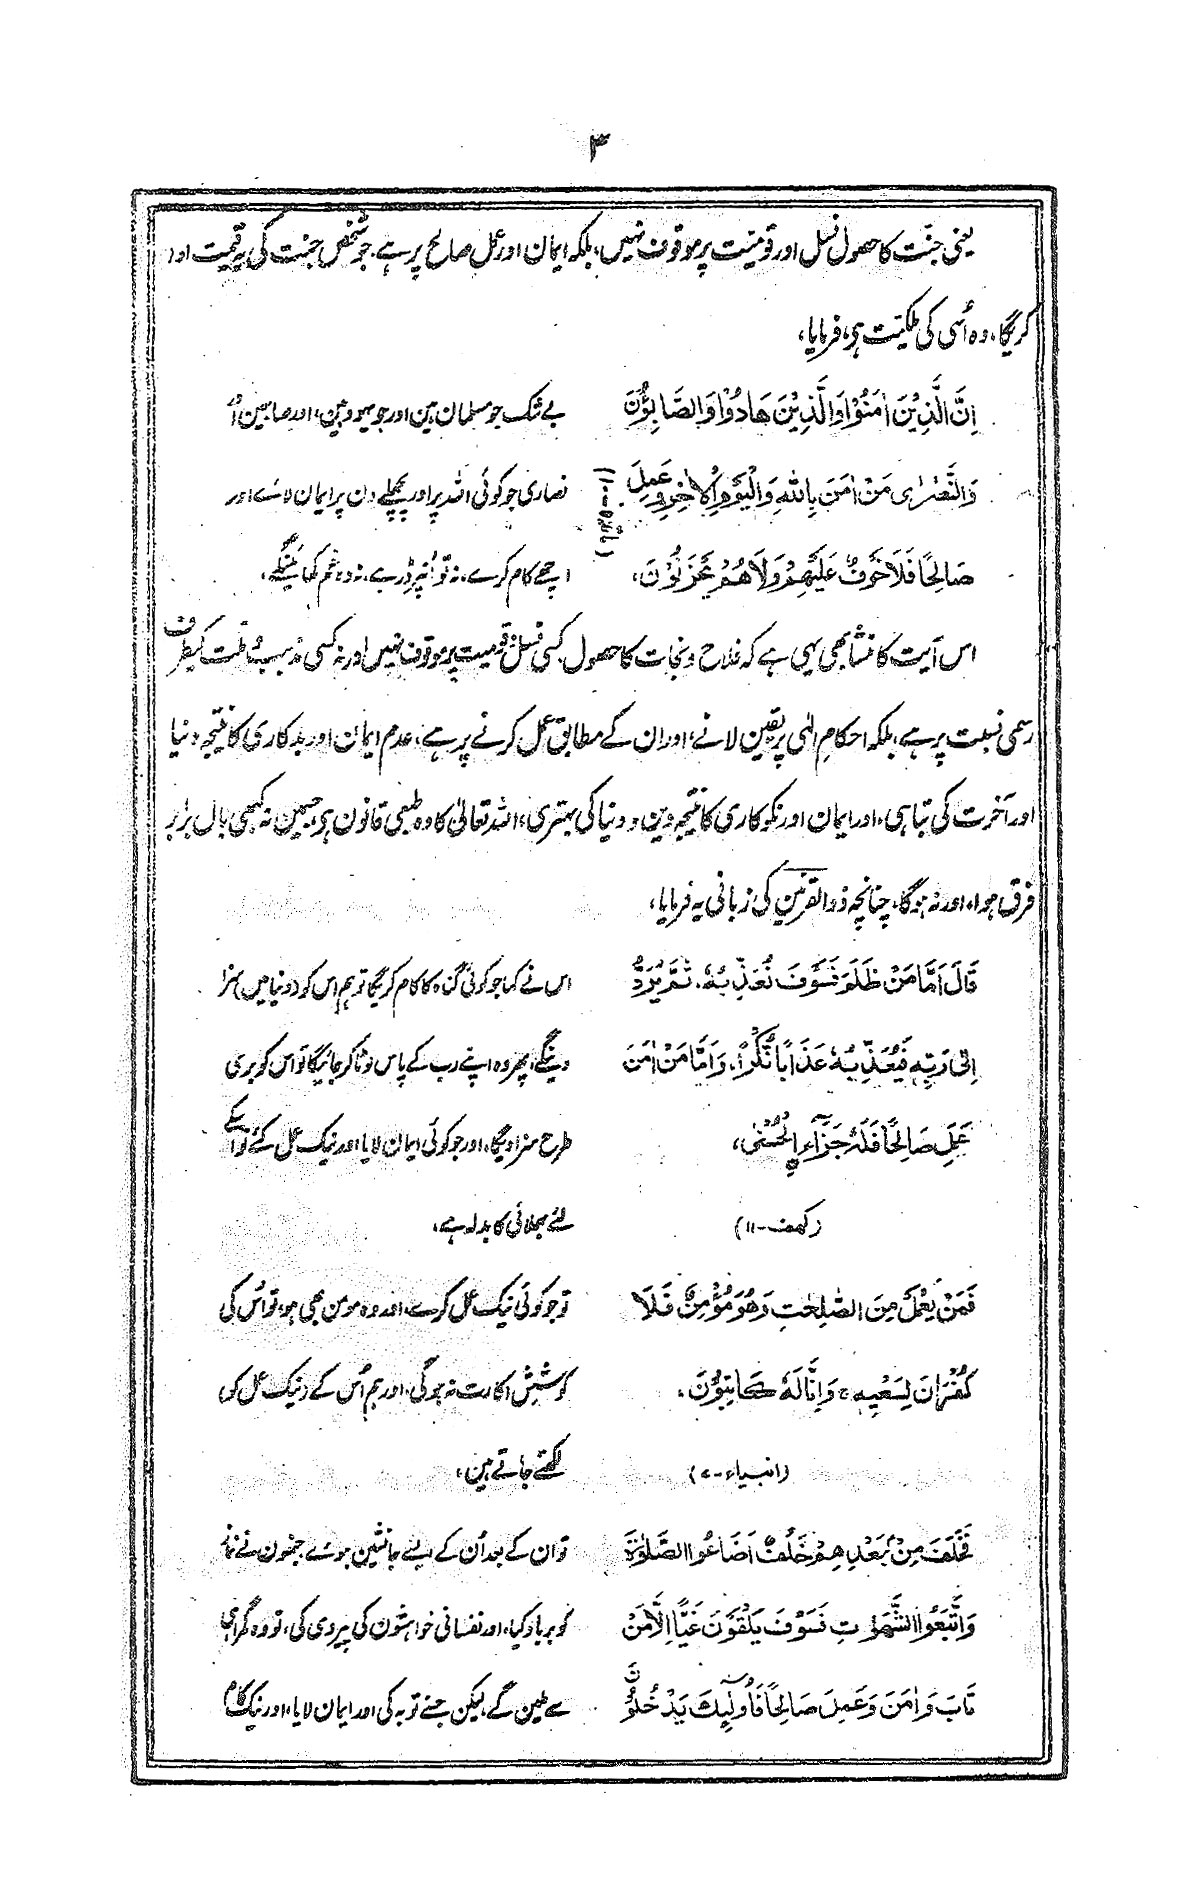 ۳
یعنی جنت کا حصول نسل اور قومیت پر موقوف نہیں، بلکہ ایمان اور عمل صالح پر ہے، جو شخص جنت کی یہ قیمت ادا
کریگا، وہ اُسی کی ملکیت ہی، فرمایا،
اِنَّ الَّذِیْنَ اٰمَنُوْا وَالَّذِیْنَ هَادُوْا وَالصَّابِئُوْنَ بے شک جو مسلمان ہین اور جو یہود ہین، اور صابئین اور
وَالنَّصٰرٰی مَنْ اٰمَنَ بِاللّٰهِ وَالْیَوْمِ الْاٰخِرِ وَعَمِلَ (مائدہ-۱۰) نصاریٰ جو کوئی اللہ پر اور پچھلے دن پر ایمان لائے اور
صَالِحًا فَلَا خَوْفٌ عَلَیْهِمْ وَلَا هُمْ یَحْزَنُوْنَ، اچھے کام کرے، نہ تو اُنپر ڈر ہے، نہ وہ غم کھائینگے،
اس آیت کا منشا بھی یہی ہے کہ فلاح و نجات کا حصول کسی نسل و قومیت پر موقوف نہیں اور نہ کسی مذہب و ملت کیطرف
رسمی نسبت پر ہے، بلکہ احکامِ الٰہی پر یقین لانے، اور ان کے مطابق عمل کرنے پر ہے، عدم ایمان اور بدکاری کا نتیجہ دنیا
اور آخرت کی تباہی، اور ایمان اور نکوکاری کا نتیجہ دین و دنیا کی بہتری، اللہ تعالیٰ کا وہ طبعی قانون ہی، جسمین نہ کبھی بال برابر
فرق ہوا، اور نہ ہوگا، چنانچہ ذوالقرنین کی زبانی یہ فرمایا،
قَالَ اَمَّا مَنْ ظَلَمَ فَسَوْفَ نُعَذِّبُهٗ، ثُمَّ یُرَدُّ اس نے کہا جو کوئی گناہ کا کام کریگا تو ہم اس کو (دنیا میں) سزا
اِلٰی رَبِّهٖ فَیُعَذِّبُهٗ عَذَابًا نُّكْرًا، وَاَمَّا مَنْ اٰمَنَ دینگے، پھر وہ اپنے رب کے پاس لوٹا کر جائیگا تو اس کو بری
عَمِلَ صَالِحًا فَلَهٗ جَزَآءَ اِلْحُسْنٰی، طرح سزا دیگا، اور جو کوئی ایمان لایا اور نیک عمل کئے تو اسکے
(کھف-۱۱) لئے بھلائی کا بدلہ ہے،
فَمَنْ یَّعْمَلْ مِنَ الصّٰلِحٰتِ وَهُوَ مُؤْمِنٌ فَلَا تو جو کوئی نیک عمل کرے، اور وہ مومن بھی ہو، تو اُس کی
كُفْرَانَ لِسَعْیِهٖ ج وَاِنَّا لَهٗ كَاتِبُوْنَ، کوشش اکارت نہ ہوگی، اور ہم اُس کے (نیک عمل کو)
(انبیاء-۷) لکھتے جاتے ہین،
فَخَلَفَ مِنْۢ بَعْدِهِمْ خَلْفٌ اَضَاعُوا الصَّلٰوةَ تو ان کے بعد اُن کے ایسے جانشین ہوئے جنھون نے نماز
وَاتَّبَعُوا الشَّهَوٰتِ فَسَوْفَ یَلْقَوْنَ غَیًّا اِلَّا مَنْ کو برباد کیا، اور نفسانی خواہشون کی پیروی کی، تو وہ گمراہی
تَابَ وَاٰمَنَ وَعَمِلَ صَالِحًا فَاُولٰٓئِكَ یَدْخُلُوْنَ سے ملین گے، لیکن جسنے توبہ کی اور ایمان لایا، اور نیک کام